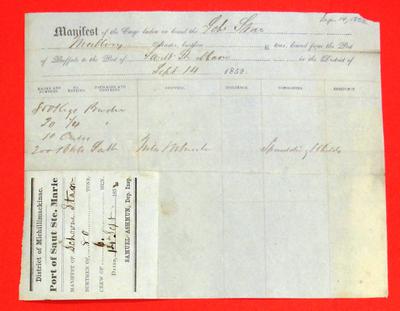 Sep. 14, 1852
Manifest of the Cargo laden on board the Schr Star
Master, burthen tons, bound from the Port
of Buffalo to the Port of Sault Ste Marie in the District of
Sept 14 1852.
MARKS AND NUMBERS. NO. ENTRIES. PACKAGES AND CONTENTS. SHIPPERS. RESIDENCE. CONSIGNEES. RESIDENCE.
800 Kegs Powder
20 "
10
200 Bbls Salt Spaulding & Childs
District of Michilimackinac.
Port of Saut Ste. Marie
MANIFEST OF Schooner Star
BURTHEN OF 80 TONS.
CREW OF 6 MEN.
DATED, 14 Sept. 185
SAMUEL ASHMUN, Dep. Insp.